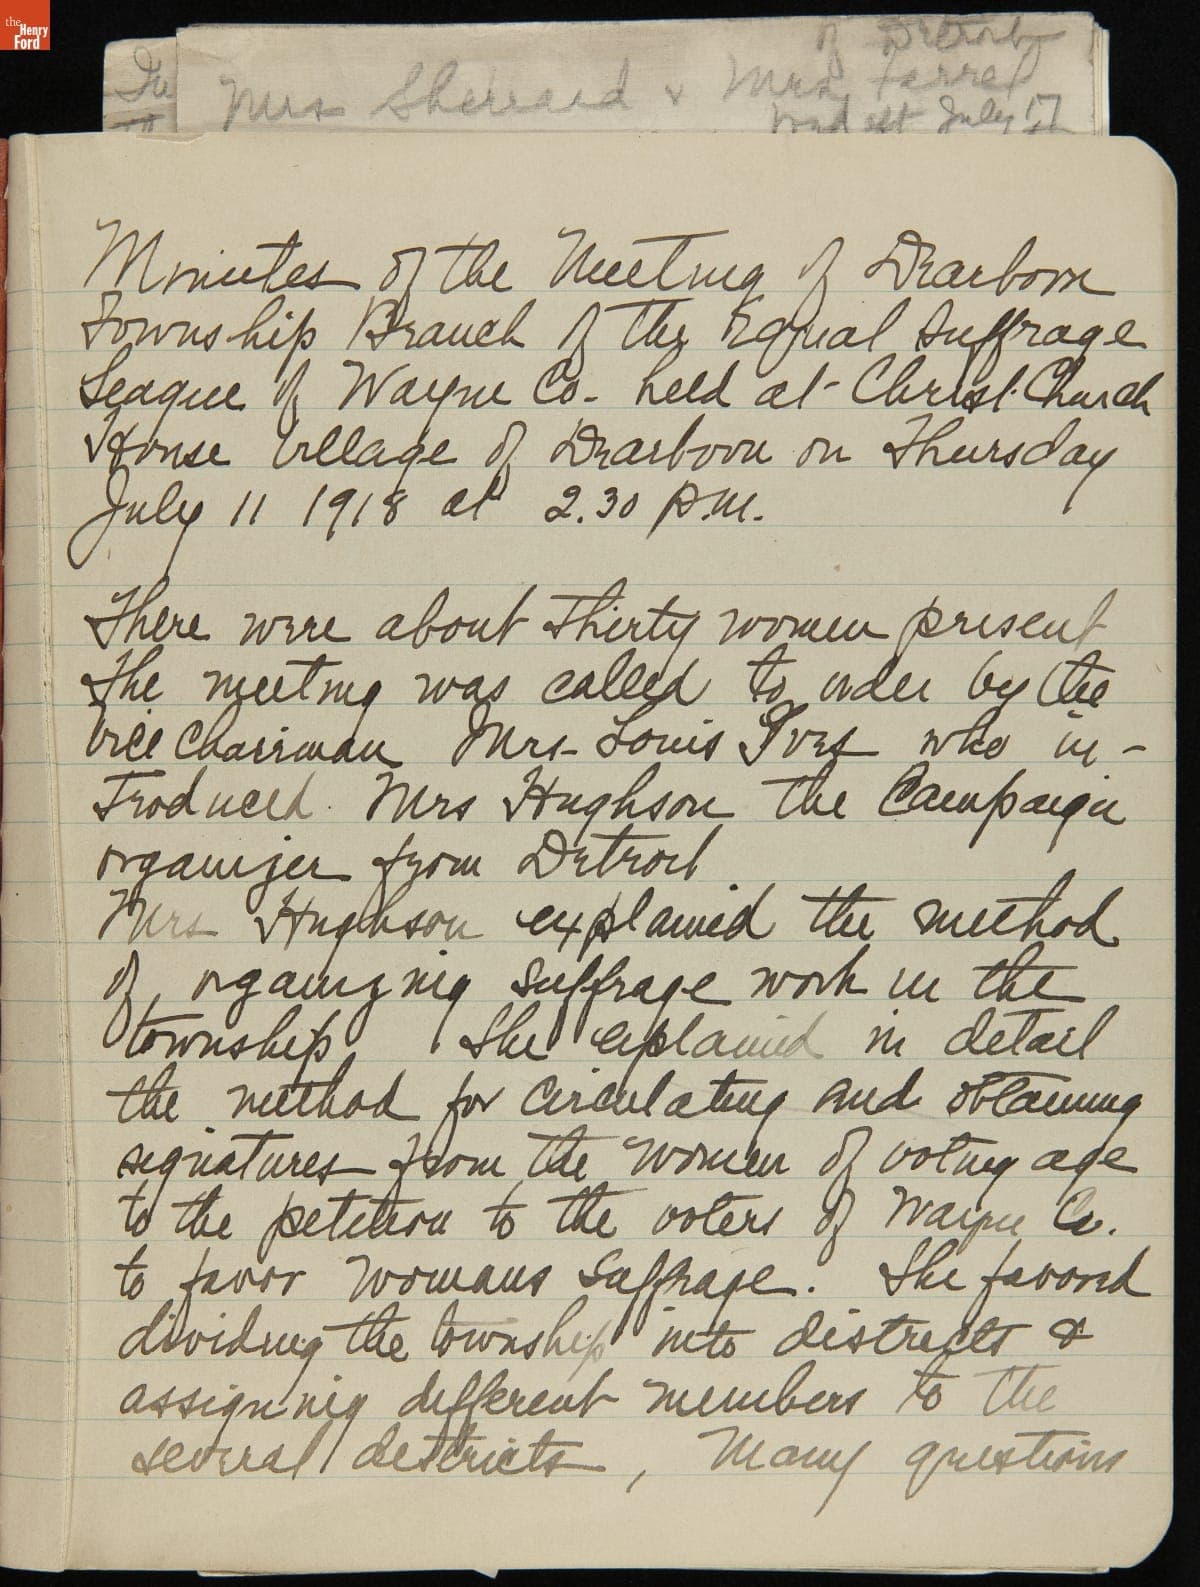 the
Henry
Ford
of Detroit
Mrs Sherrard & Mrs. Farrel
July 17
Minutes of the Meeting of Dearborn
Township Branch of the Equal Suffrage
League of Wayne Co. held at Christ Church
House Village of Dearborn on Thursday
July 11 1918 at 2.30 P.M.
There were about Thirty women present
The meeting was called to order by the
Vice Chairman Mrs. Louis Ives who in-
troduced Mrs Hughson the Campaign
organizer from Detroit
Mrs Hughson explained the method
of organizing suffrage work in the
township. She explained in detail
the method for circulating and obtaining
signatures from the women of voting age
to the petition to the voters of Wayne Co.
to favor womans suffrage. She favored
dividing the township into districts &
assigning different members to the
several districts, Many questions